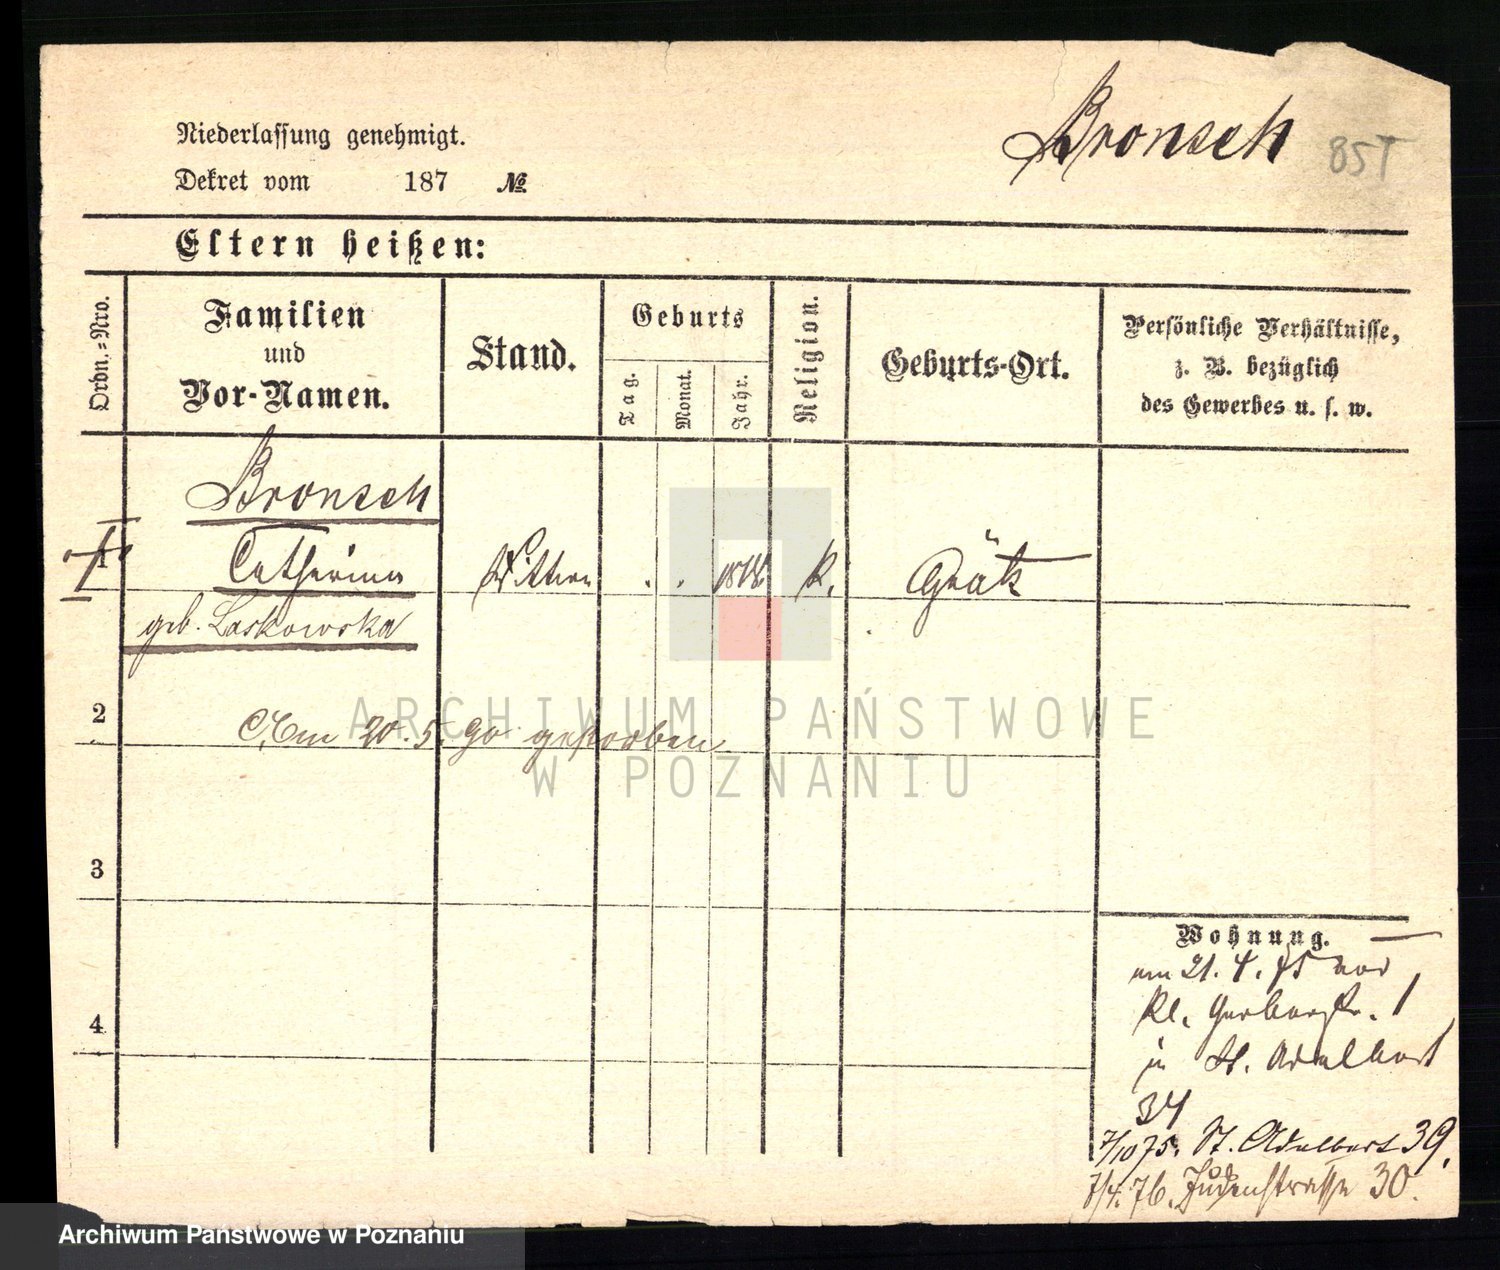 Bronsch
85T
Niederlassung genehmigt.
Dekret vom 187 №
Eltern heißen:
Ordn.-Nro.
Familien
und
Vor-Namen.
Stand.
Geburts
Tag.
Monat.
Jahr.
Religion.
Geburts-Ort.
Persönliche Verhältnisse,
z. B. bezüglich
des Gewerbes u. s. w.
Bronsch
1 Catharina Wittwe . . 1818 K. Grätz
geb. Laskowska
2
Am 20. 5. 90 gestorben
3
4
Wohnung.
am 21. 4. 75 von
Kl. Gerberstr. 1
in St. Adalbert
34
7/10 75. St. Adalbert 39.
7/4. 76. Judenstrasse 30.
ARCHIWUM PAŃSTWOWE
W POZNANIU
Archiwum Państwowe w Poznaniu